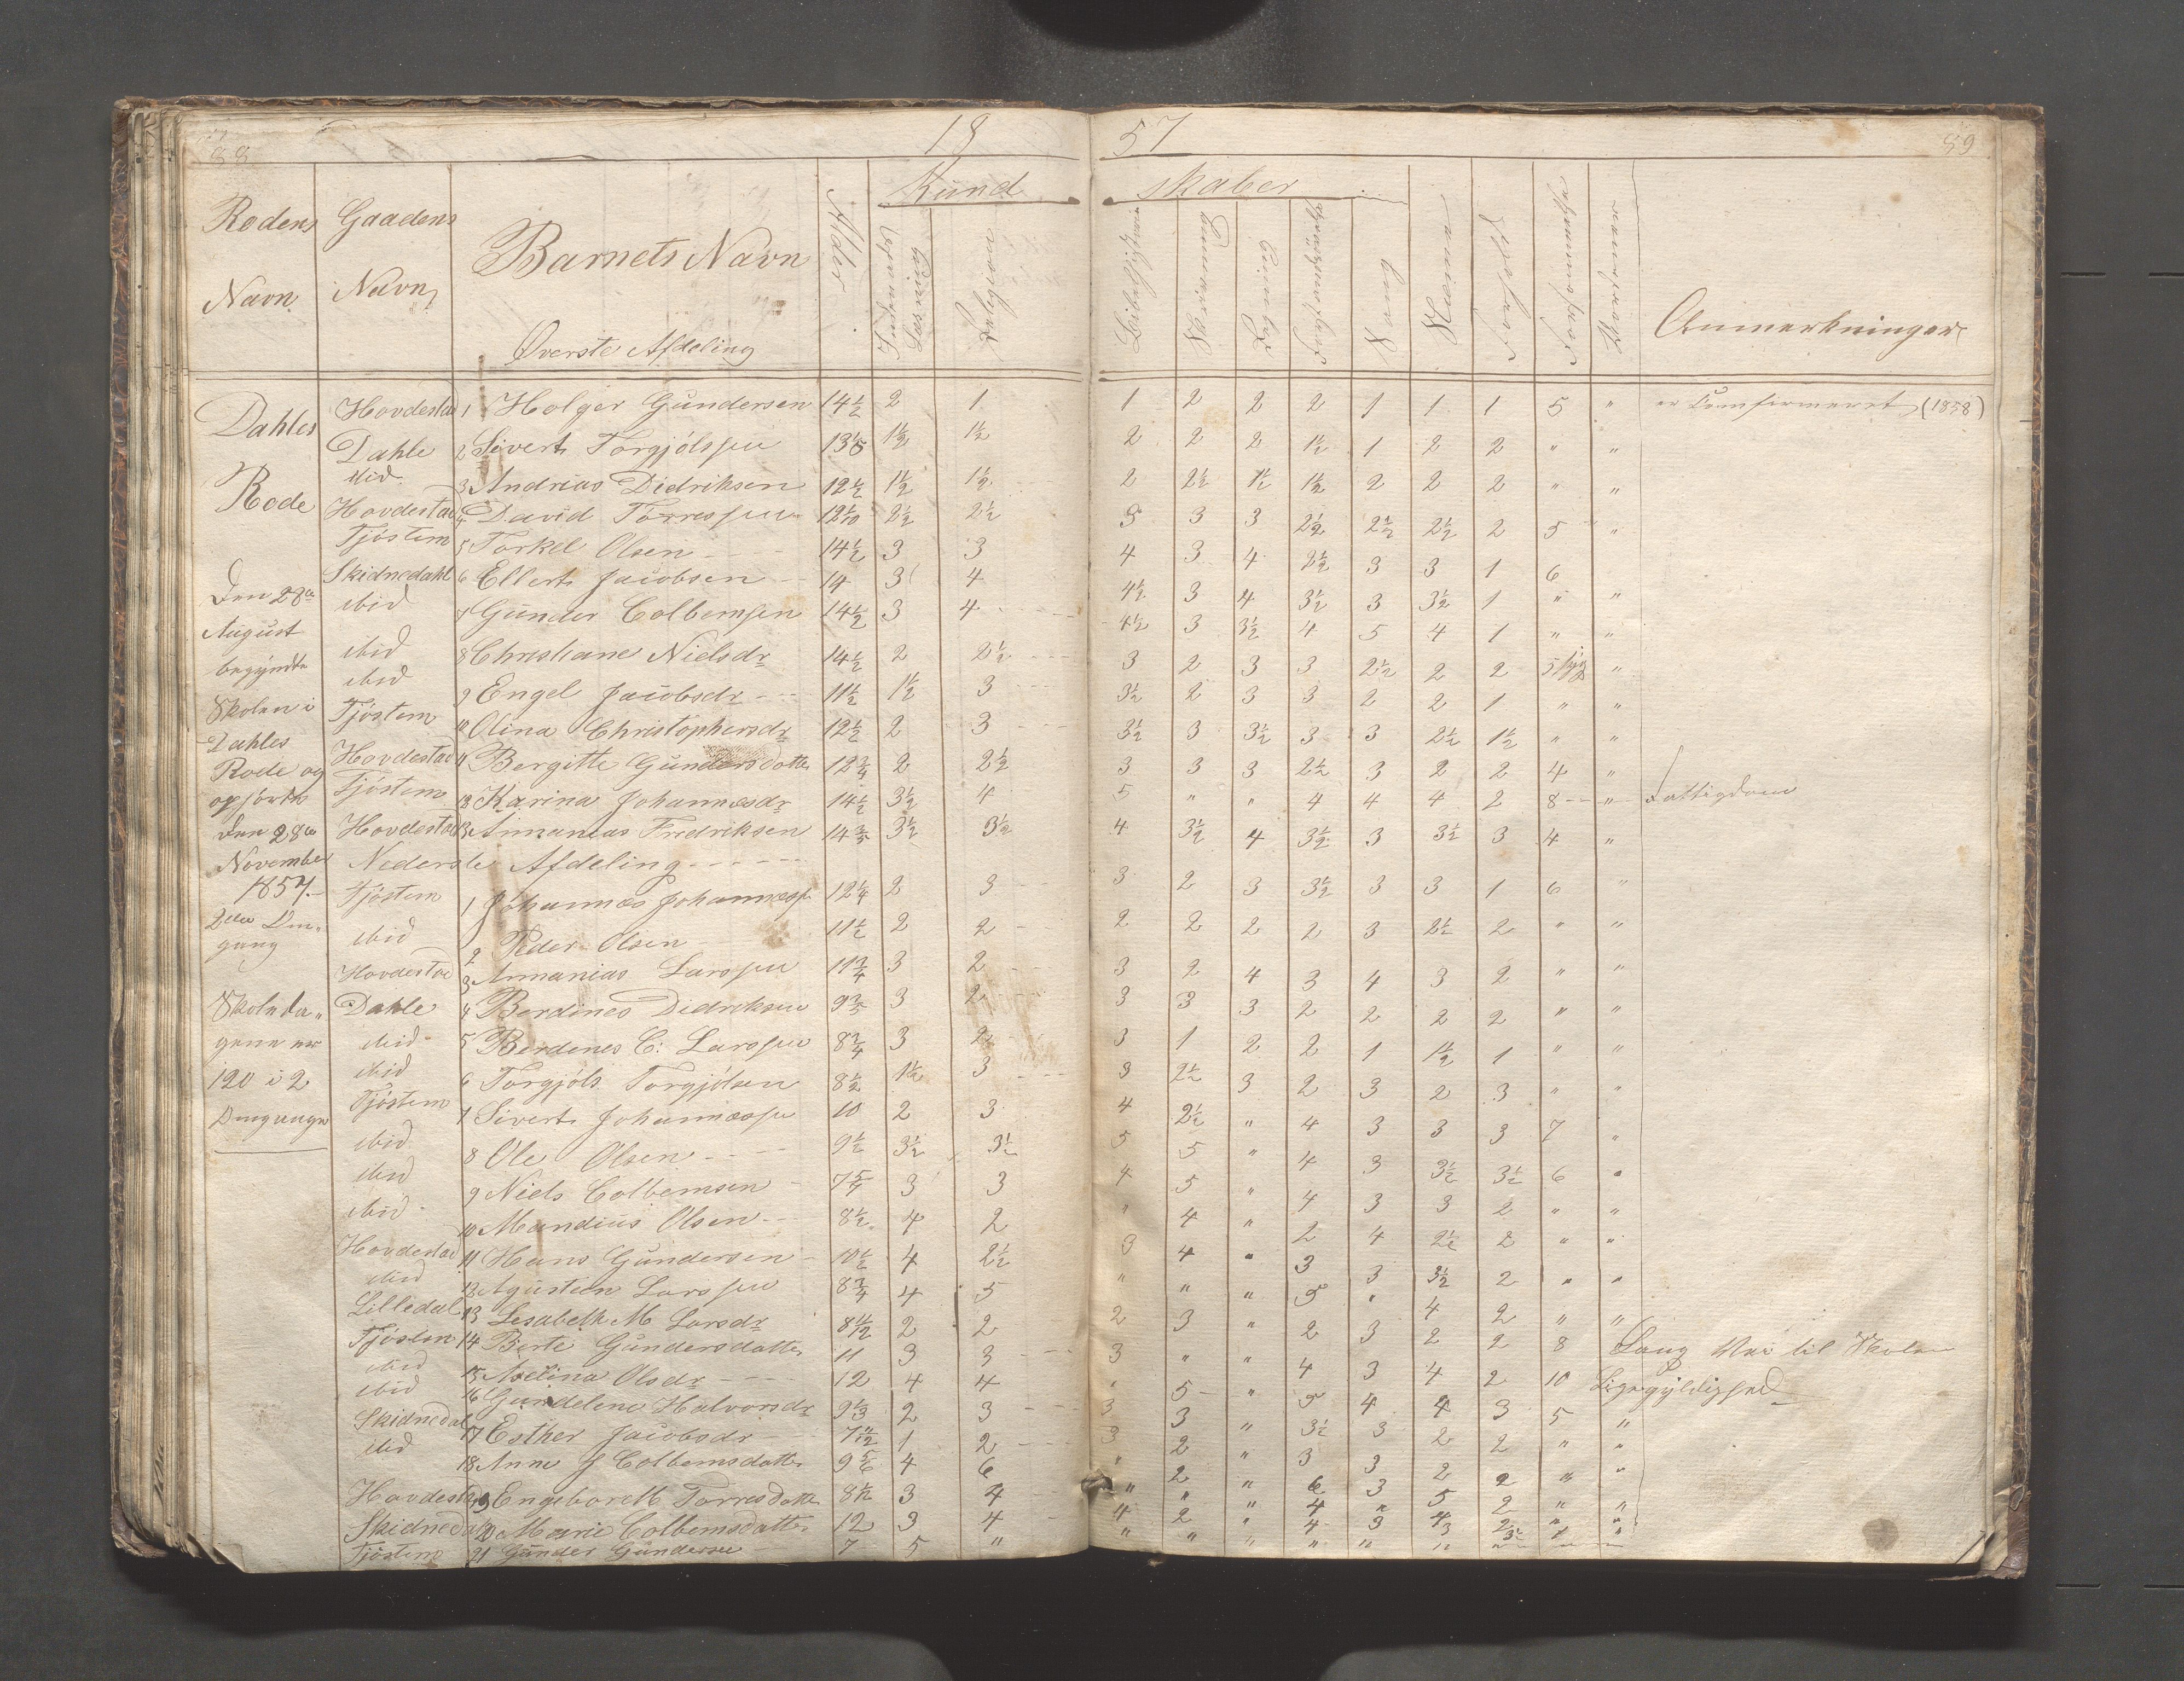 18 57
59
Kund skaber
Rodens Navn | Gaadens Navn | Barnets Navn | Alder | Indenads Læsning | Religion | Bibelhistorie | Skrivning | Regning | Sang | Nemme | Anmærkninger
Øverste Afdeling
Dahles Hovdestad 1 Holger Gundersen 14½ 2 1 1 2 2 2 1 1 1 5 " er Comfirmeret (1858)
Dahle 2 Sivert Torgjólssen 1½ 1½ 2 2 2 1½ 1 2 2 " "
Rode ibid 3 Andreas Didriksen 12½ 1½ 1½ 2 2½ 1½ 1½ 2 2 2 " "
Hovdestad 4 David Törressen 2½ 2½ 3 3 3 2½ 2½ 2½ 2 5 "
Tjóstem 5 Torkel Olsen 14½ 3 3 4 3 4 2½ 3 3 1 6
Skidnedahl 6 Ellert Jacobsen 14 3 4 4½ 3 4 3½ 3 3½ 1 " "
Den 28de ibid 7 Gunder Colbemsen 14½ 3 4 4½ 3 3½ 4 5 4 1 " "
August ibid 8 Christiane Nielsdr 14½ 2 2½ 3 2 3 3 2½ 2 2 5 "
begyndte ibid 9 Engel Jacobsdr 11½ 1½ 3 3½ 2 3 3 2 2 1 " "
Skolen i Tjóstem 10 Olina Christophersdr 12½ 2 3 3½ 3 3½ 3 3 2½ 1½ " "
Dahles
Rode og Hovdestad 11 Bergitte Gundersdatter 12¾ 2 2½ 3 3 3 2½ 3 2 2 4 "
opförte Tjóstem 12 Karina Johannesdr 14½ 3½ 4 5 " " 4 4 4 2 8 " Fattigdom
den 28de Hovdestad 13 Annanias Fredriksen 3½ 3½ 4 3½ 4 3½ 3 3½ 3 4 "
November Nederste Afdeling
1857 Tjóstem 1 Johannes Johannessen 12¼ 2 3 3 2 3 3½ 3 3 1 6 "
2den Om-
gang ibid 2 Peder Olsen 11½ 2 2 2 2 2 2 3 2½ 2 " "
Hovdestad 3 Annanias Larssen 11¾ 3 2 3 2 4 3 4 3 2 " "
Skoleda- Dahle 4 Berdines Didriksen 3 2 3 3 3 2 2 2 2 " "
gene er ibid 5 Berdines C: Larssen 8¾ 3 2 3 1 2 2 1 1½ 1 " "
120 i 2 ibid 6 Torgjóls Torgjólsen 8½ 1½ 3 3 2½ 3 2 3 2 3 " "
Omgange Tjóstem 7 Sivert Johannessen 10 2 3 4 2½ " 4 3 3 3 7 "
ibid 8 Ole Olsen 9½ 3½ 3½ 5 5 " 4 3 3½ 3½ 6 "
ibid 9 Niels Colbemsen 3 3 4 5 " 4 3 3 2 " "
ibid 10 Mandius Olsen 8½ 4 2 " 4 " 2 4 2½ 2 " "
Hovdestad 11 Hans Gundersen 10½ 4 2½ 3 4 " 3 3 3½ 2 " "
ibid 12 Agustien Larssen 8¾ 4 5 " " " 5 " 4 2 " "
Lilledal 13 Lesabeth M Larsdr 2 2 2 3 " 2 3 2 2 8 Lang Vei til Skolen
Tjóstem 14 Berte Gundersdatter 11 3 3 3 " " 4 3 4 2 10 Ligegyldighed
ibid 15 Axelina Olsdr 12 4 4 " 5 " 5 4 4 3 5 "
ibid 16 Gundelena Halvorsdr 9⅓ 2 3 3 3 " 3½ 3 2 2 " "
Skidnedal 17 Esther Jacobsdr 1 2 3 2 " 3 3 2 2 " "
ibid 18 Anne J Colbemsdatter 9⅚ 4 6 " 2 " 6 3 5 2 " "
Hovdestad 19 Engeboreth Torresdatter 3 4 " " " 4 " 4 2 " "
Skidnedal 20 Marie Colbemsdatter 12 3 4 4 2 " 4 3 3
Tjóstem 21 Gunder Gundersen 7 5 " " " " " " "